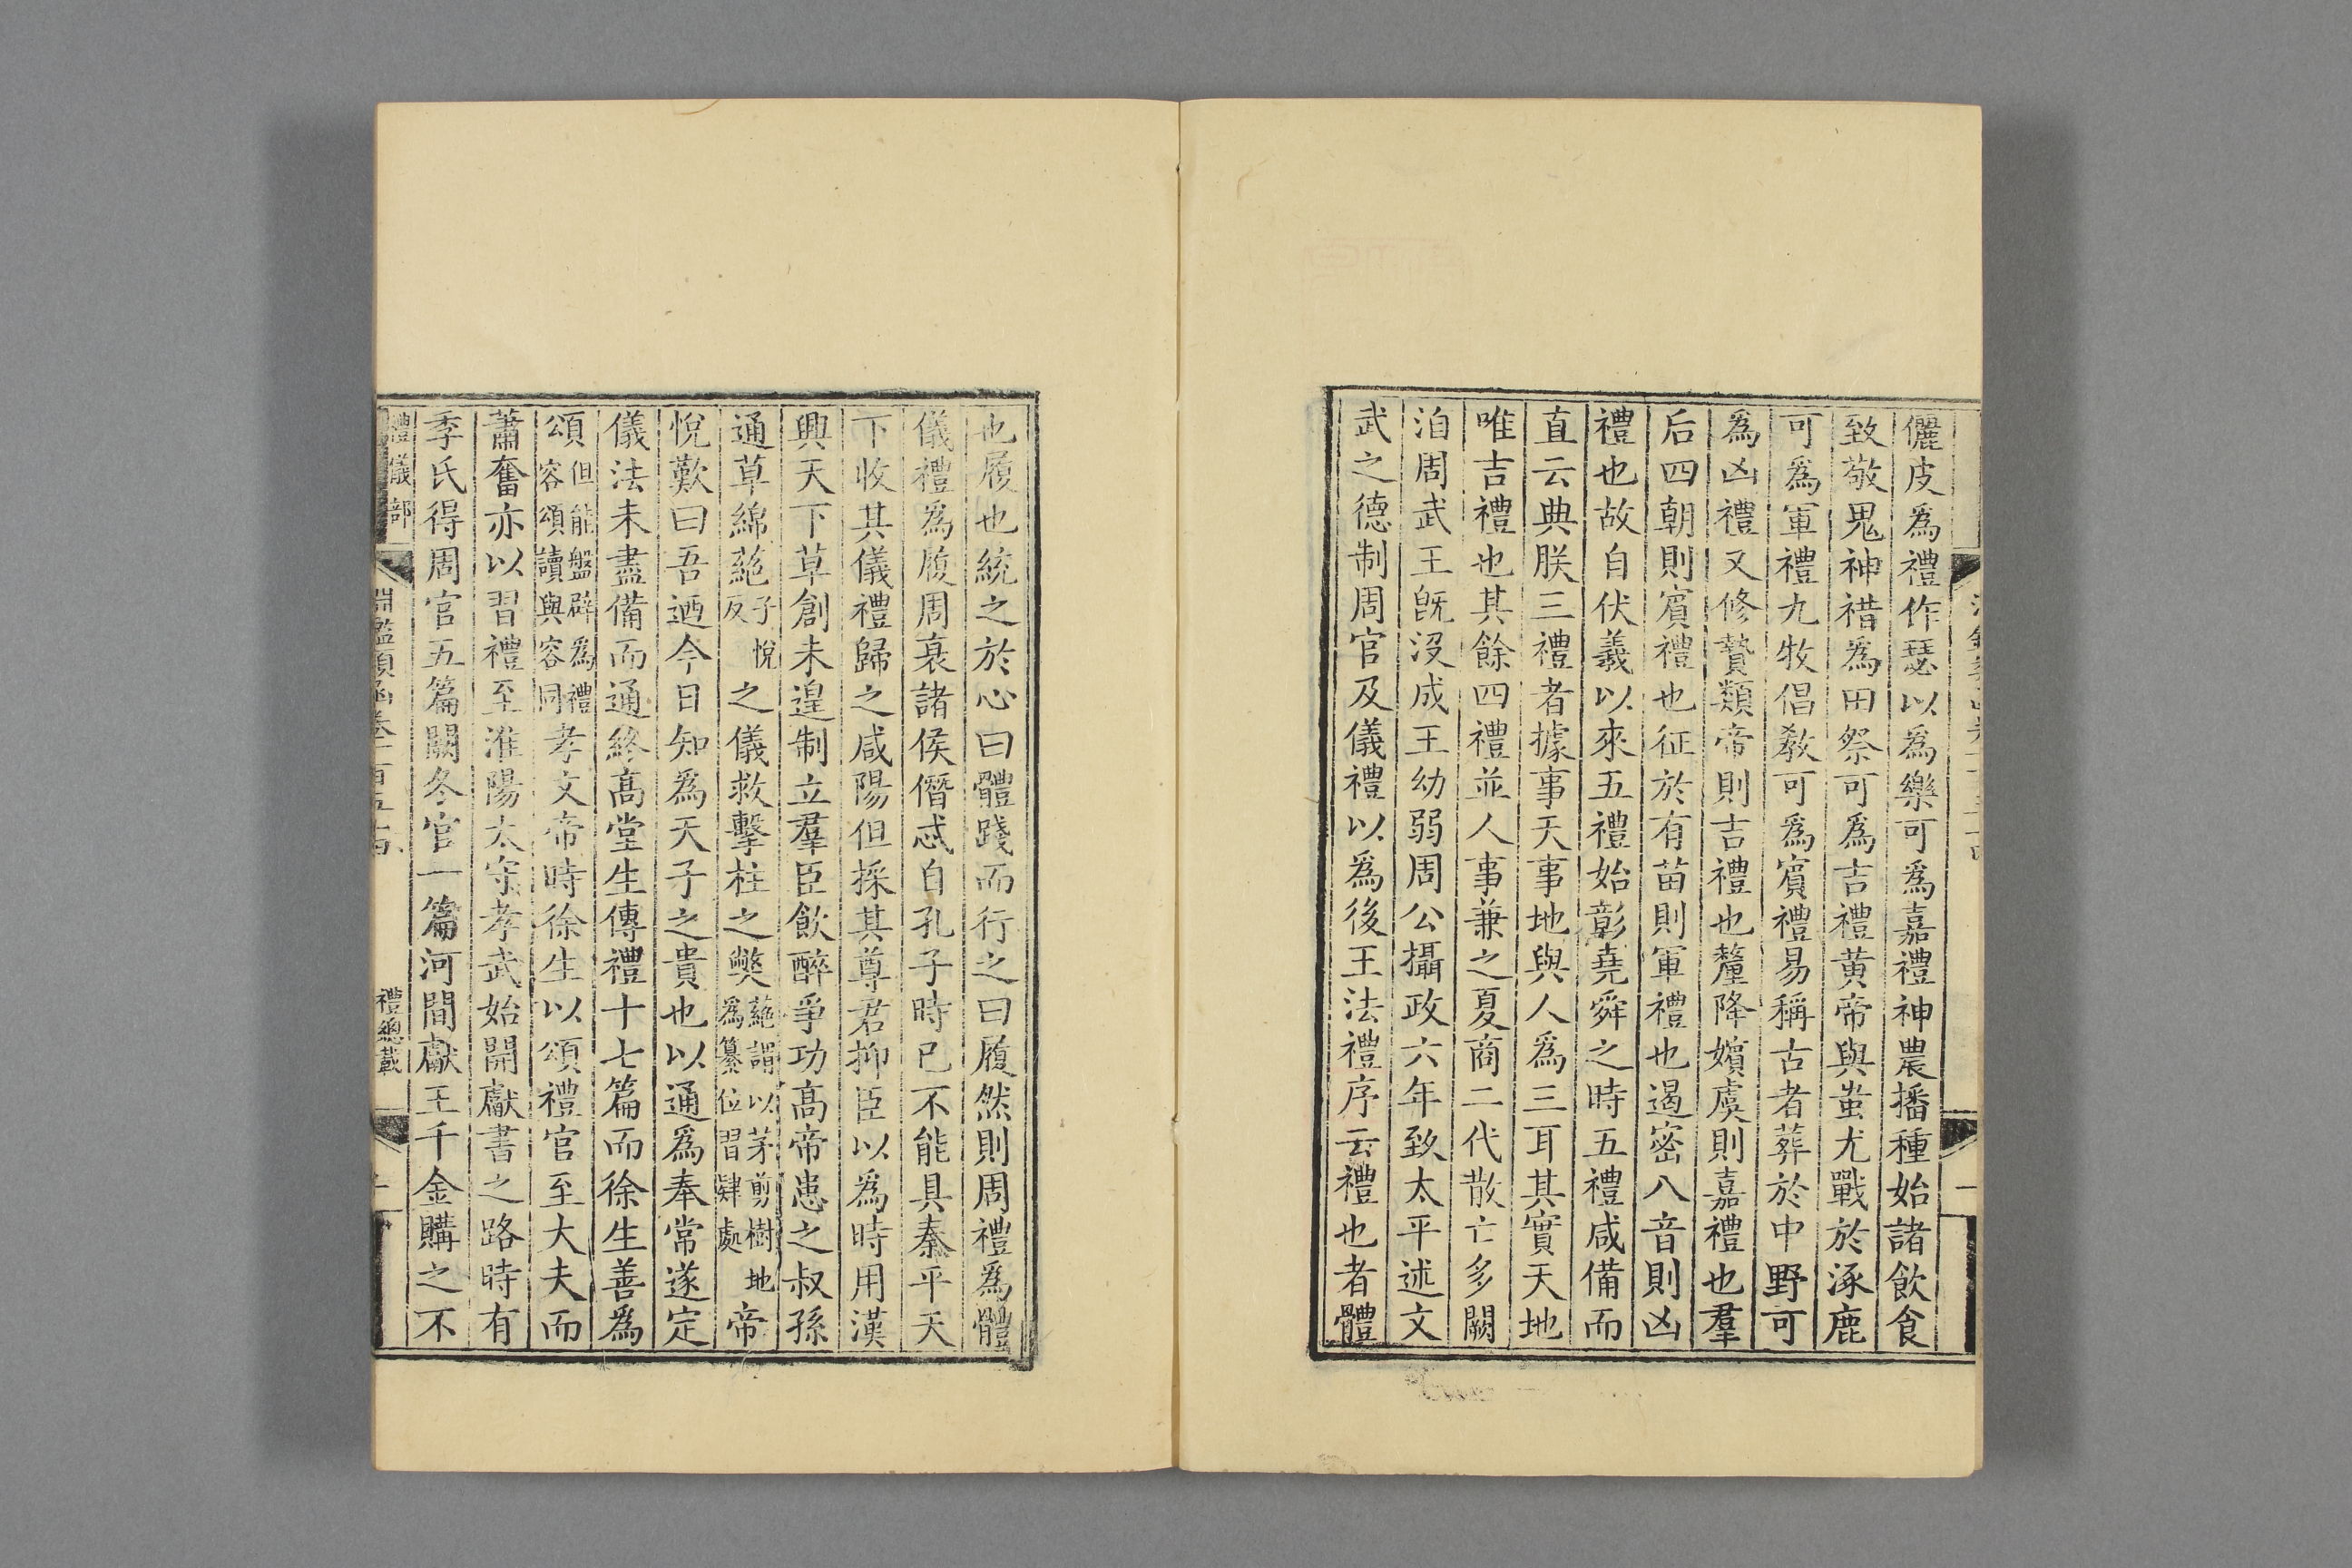 儷皮爲禮作瑟以爲樂可爲嘉禮神農播種始諸飲食
致敬鬼神䄍爲田祭可爲吉禮黃帝與蚩尤戰於涿鹿
可爲軍禮九牧倡敎可爲賓禮易稱古者葬於中野可
爲凶禮又修贄類帝則吉禮也釐降嬪虞則嘉禮也羣
后四朝則賓禮也征於有苗則軍禮也遏密八音則凶
禮也故自伏羲以來五禮始彰堯舜之時五禮咸備而
直云典朕三禮者據事天事地與人爲三耳其實天地
唯吉禮也其餘四禮並人事兼之夏商二代散亡多闕
洎周武王旣沒成王幼弱周公攝政六年致太平述文
武之德制周官及儀禮以爲後王法禮序云禮也者體
也履也統之於心曰體踐而行之曰履然則周禮爲體
儀禮爲履周衰諸侯僭忒自孔子時已不能具秦平天
下收其儀禮歸之咸陽但採其尊君抑臣以爲時用漢
興天下草創未遑制立羣臣飲醉爭功高帝患之叔孫
通草綿蕝子悅反之儀救擊柱之獘蕝謂以茅剪樹地爲纂位習肄處帝
悅歎曰吾迺今日知爲天子之貴也以通爲奉常遂定
儀法未盡備而通終高堂生傳禮十七篇而徐生善爲
頌但能盤辟爲禮容頌讀與容同孝文帝時徐生以頌禮官至大夫而
蕭奮亦以習禮至淮陽太守孝武始開獻書之路時有
季氏得周官五篇闕冬官一篇河間獻王千金購之不
禮儀部
淵鑑類函卷一百五十四
禮總載